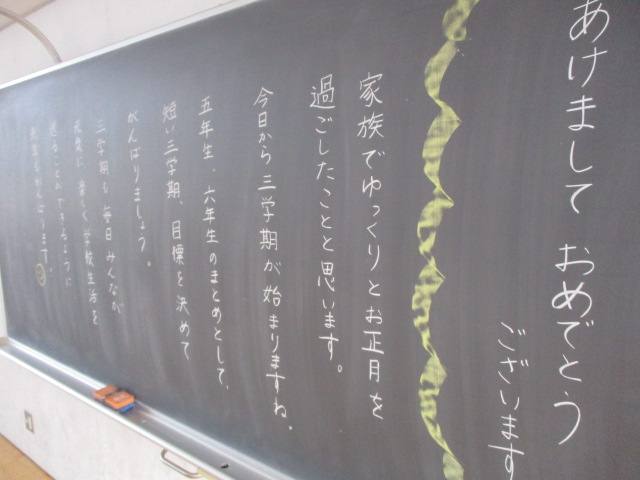 あけまして おめでとう
ございます
家族でゆっくりとお正月を
過ごしたことと思います。
今日から三学期が始まりますね。
五年生、六年生のまとめとして、
短い三学期、目標を決めて
がんばりましょう。
三学期も毎日みんなが
元気に楽しく学校生活を
送ることができるように